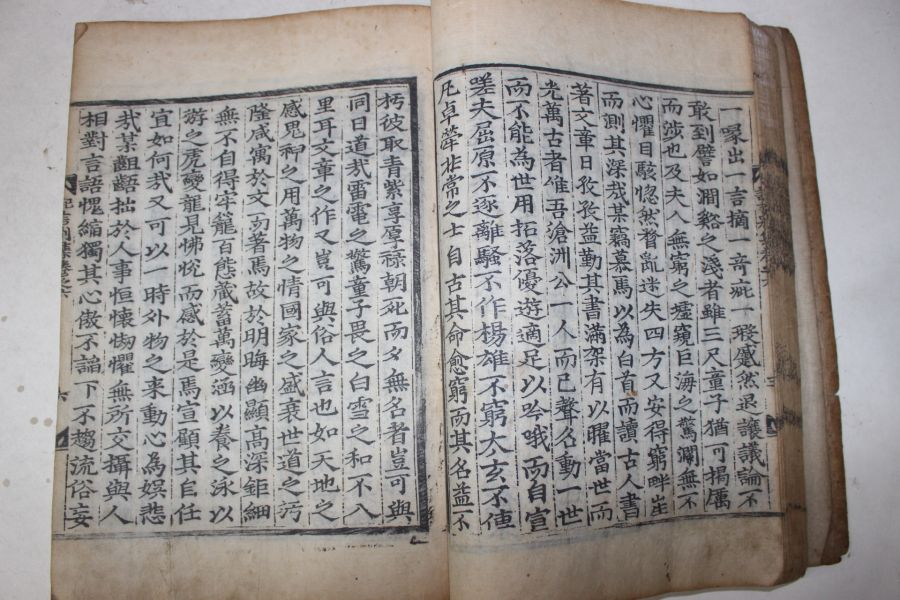 一家出一言摘一奇疵一瑕蹙然退讓議論不
敢到譬如澗谿之淺者雖三尺童子猶可揭厲
而涉也及夫人無窮之墟窺巨海之驚瀾無不
心懼目駭惚然瞀亂迷失四方又安得窮畔涯
而測其深哉某竊慕焉以爲白首而讀古人書
著文章日孜孜益勤其書滿架有以曜當世而
光萬古者唯吾滄洲公一人而已聲名動一世
而不能為世用拓落優遊適足以吟哦而自宣
嗟夫屈原不逐離騷不作楊雄不窮太玄不傳
凡卓犖非常之士自古其命愈窮而其名益不
朽彼取青紫享厚祿朝死而夕無名者豈可與
同日道哉雷電之驚童子畏之白雪之和不入
里耳文章之作又豈可與俗人言也如天地之
感鬼神之用萬物之情國家之盛衰世道之汚
隆咸寓於文一切著焉故於明晦幽顯高深鉅細
無不自得牢籠百態藏蓄萬變涵以養之泳以
游之虎變龍見怫悅而感於是焉宣顧其自任
宜如何哉又可以一時外物之来動心為娛悲
哉某齟齬拙於人事恒懷惴懼無所交攝與人
相對言語愧縮獨其心傲不諂下不趨流俗妄
六